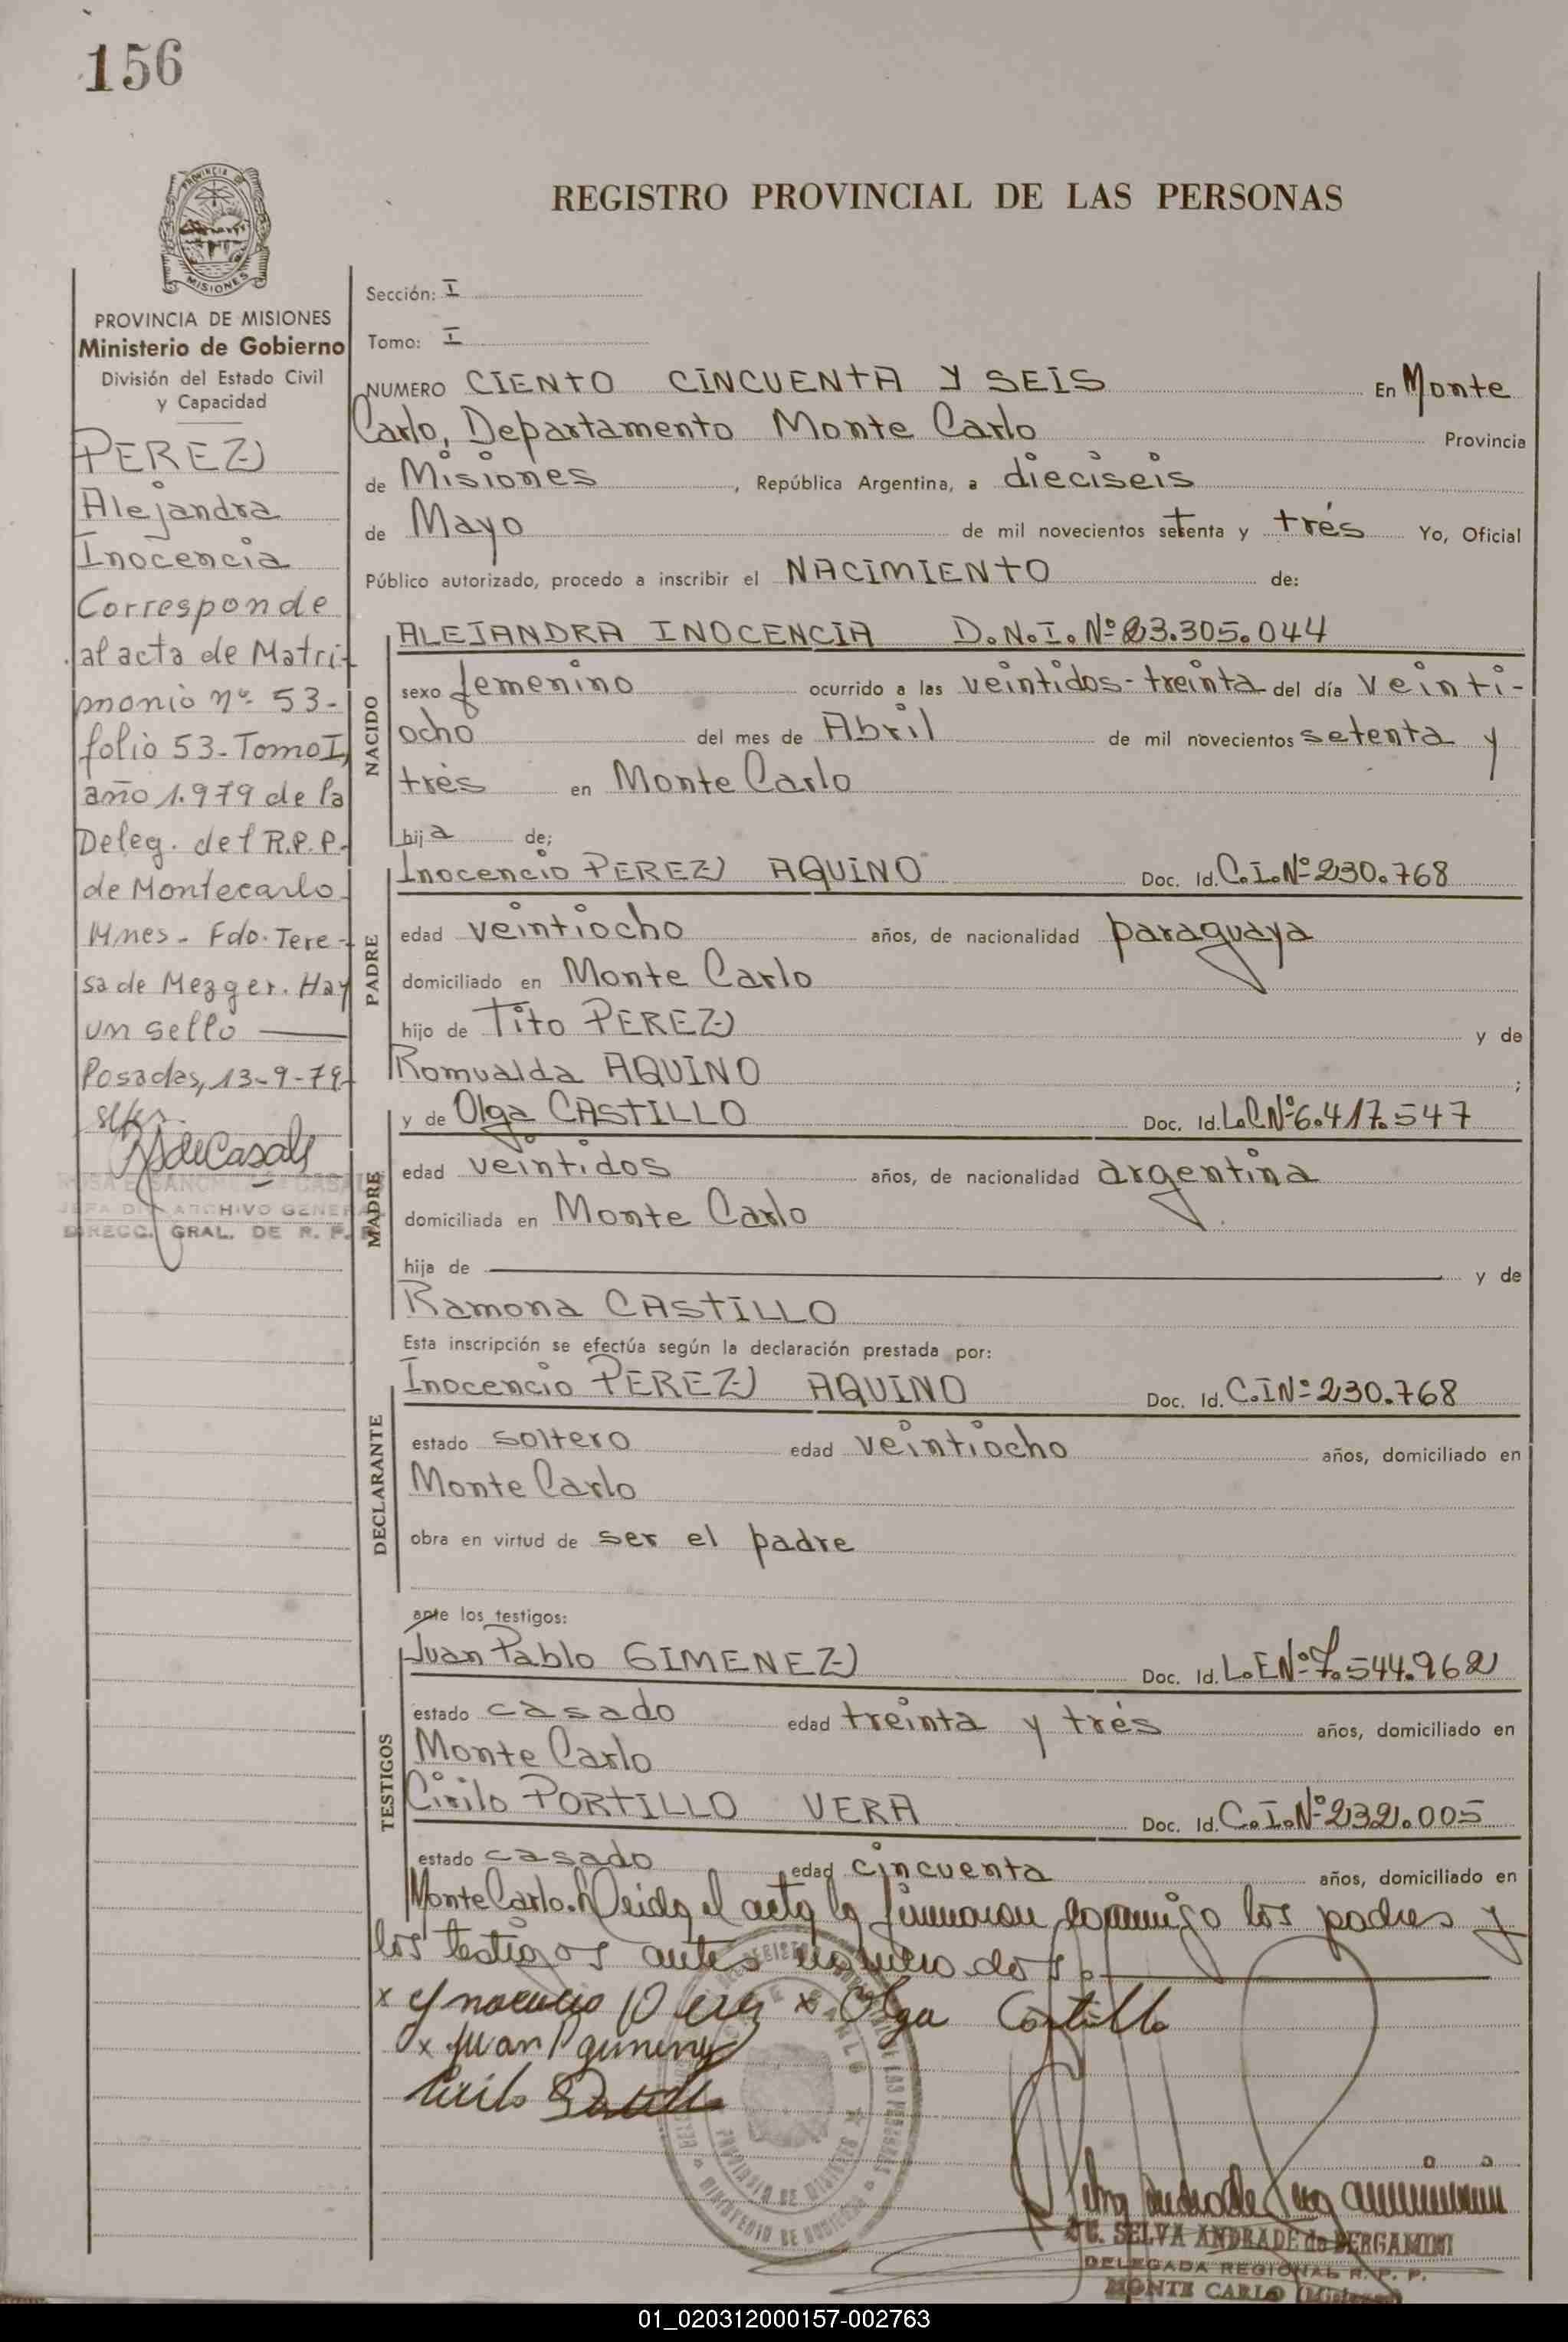 156
PROVINCIA DE
MISIONES
REGISTRO PROVINCIAL DE LAS PERSONAS
PROVINCIA DE MISIONES
Ministerio de Gobierno
División del Estado Civil
y Capacidad
PEREZ
Alejandra
Inocencia
Corresponde
al acta de Matri-
monio nº 53-
folio 53-Tomo I,
año 1.979 de la
Deleg. del R.P.P.
de Montecarlo
Mnes- Fdo. Tere-
sa de Mezger. Hay
un sello
Posadas, 13-9-79-
ROSA E. SANCHEZ DE CASALS
JEFA DIV. ARCHIVO GENERAL
DIRECC. GRAL. DE R. P. P.
Sección: I
Tomo: I
NUMERO CIENTO CINCUENTA Y SEIS En Monte
Carlo, Departamento Monte Carlo Provincia
de Misiones, República Argentina, a dieciseis
de Mayo de mil novecientos setenta y trés Yo, Oficial
Público autorizado, procedo a inscribir el NACIMIENTO de:
NACIDO
ALEJANDRA INOCENCIA D.N.I. Nº 23.305.044
sexo femenino ocurrido a las veintidos-treinta del día veinti-
ocho del mes de Abril de mil novecientos setenta y
trés en Monte Carlo
hija de;
PADRE
Inocencio PEREZ AQUINO Doc. Id. C.I.Nº 230.768
edad veintiocho años, de nacionalidad paraguaya
domiciliado en Monte Carlo
hijo de Tito PEREZ y de
Romualda AQUINO ;
MADRE
y de Olga CASTILLO Doc. Id. L.C.Nº 6.417.547
edad veintidos años, de nacionalidad argentina
domiciliada en Monte Carlo
hija de y de
Ramona CASTILLO
Esta inscripción se efectúa según la declaración prestada por:
DECLARANTE
Inocencio PEREZ AQUINO Doc. Id. C.I Nº 230.768
estado soltero edad veintiocho años, domiciliado en
Monte Carlo
obra en virtud de ser el padre
ante los testigos:
TESTIGOS
Juan Pablo GIMENEZ Doc. Id. L.E Nº 7.544.962
estado casado edad treinta y trés años, domiciliado en
Monte Carlo
Cirilo PORTILLO VERA Doc. Id. C.I.Nº 232.005
estado casado edad cincuenta años, domiciliado en
Monte Carlo. Leida el acta la firmaron conmigo los padres y
los testigos antes nombrados.
x Ynocencio Perez x Olga Castillo
x Juan P gimenez
Cirilo Portillo
PROVINCIA DE MISIONES
MINISTERIO DE GOBIERNO
SELVA ANDRADE de BERGAMINI
DELEGADA REGIONAL R. P. P.
MONTE CARLO (Misiones)
01_020312000157-002763